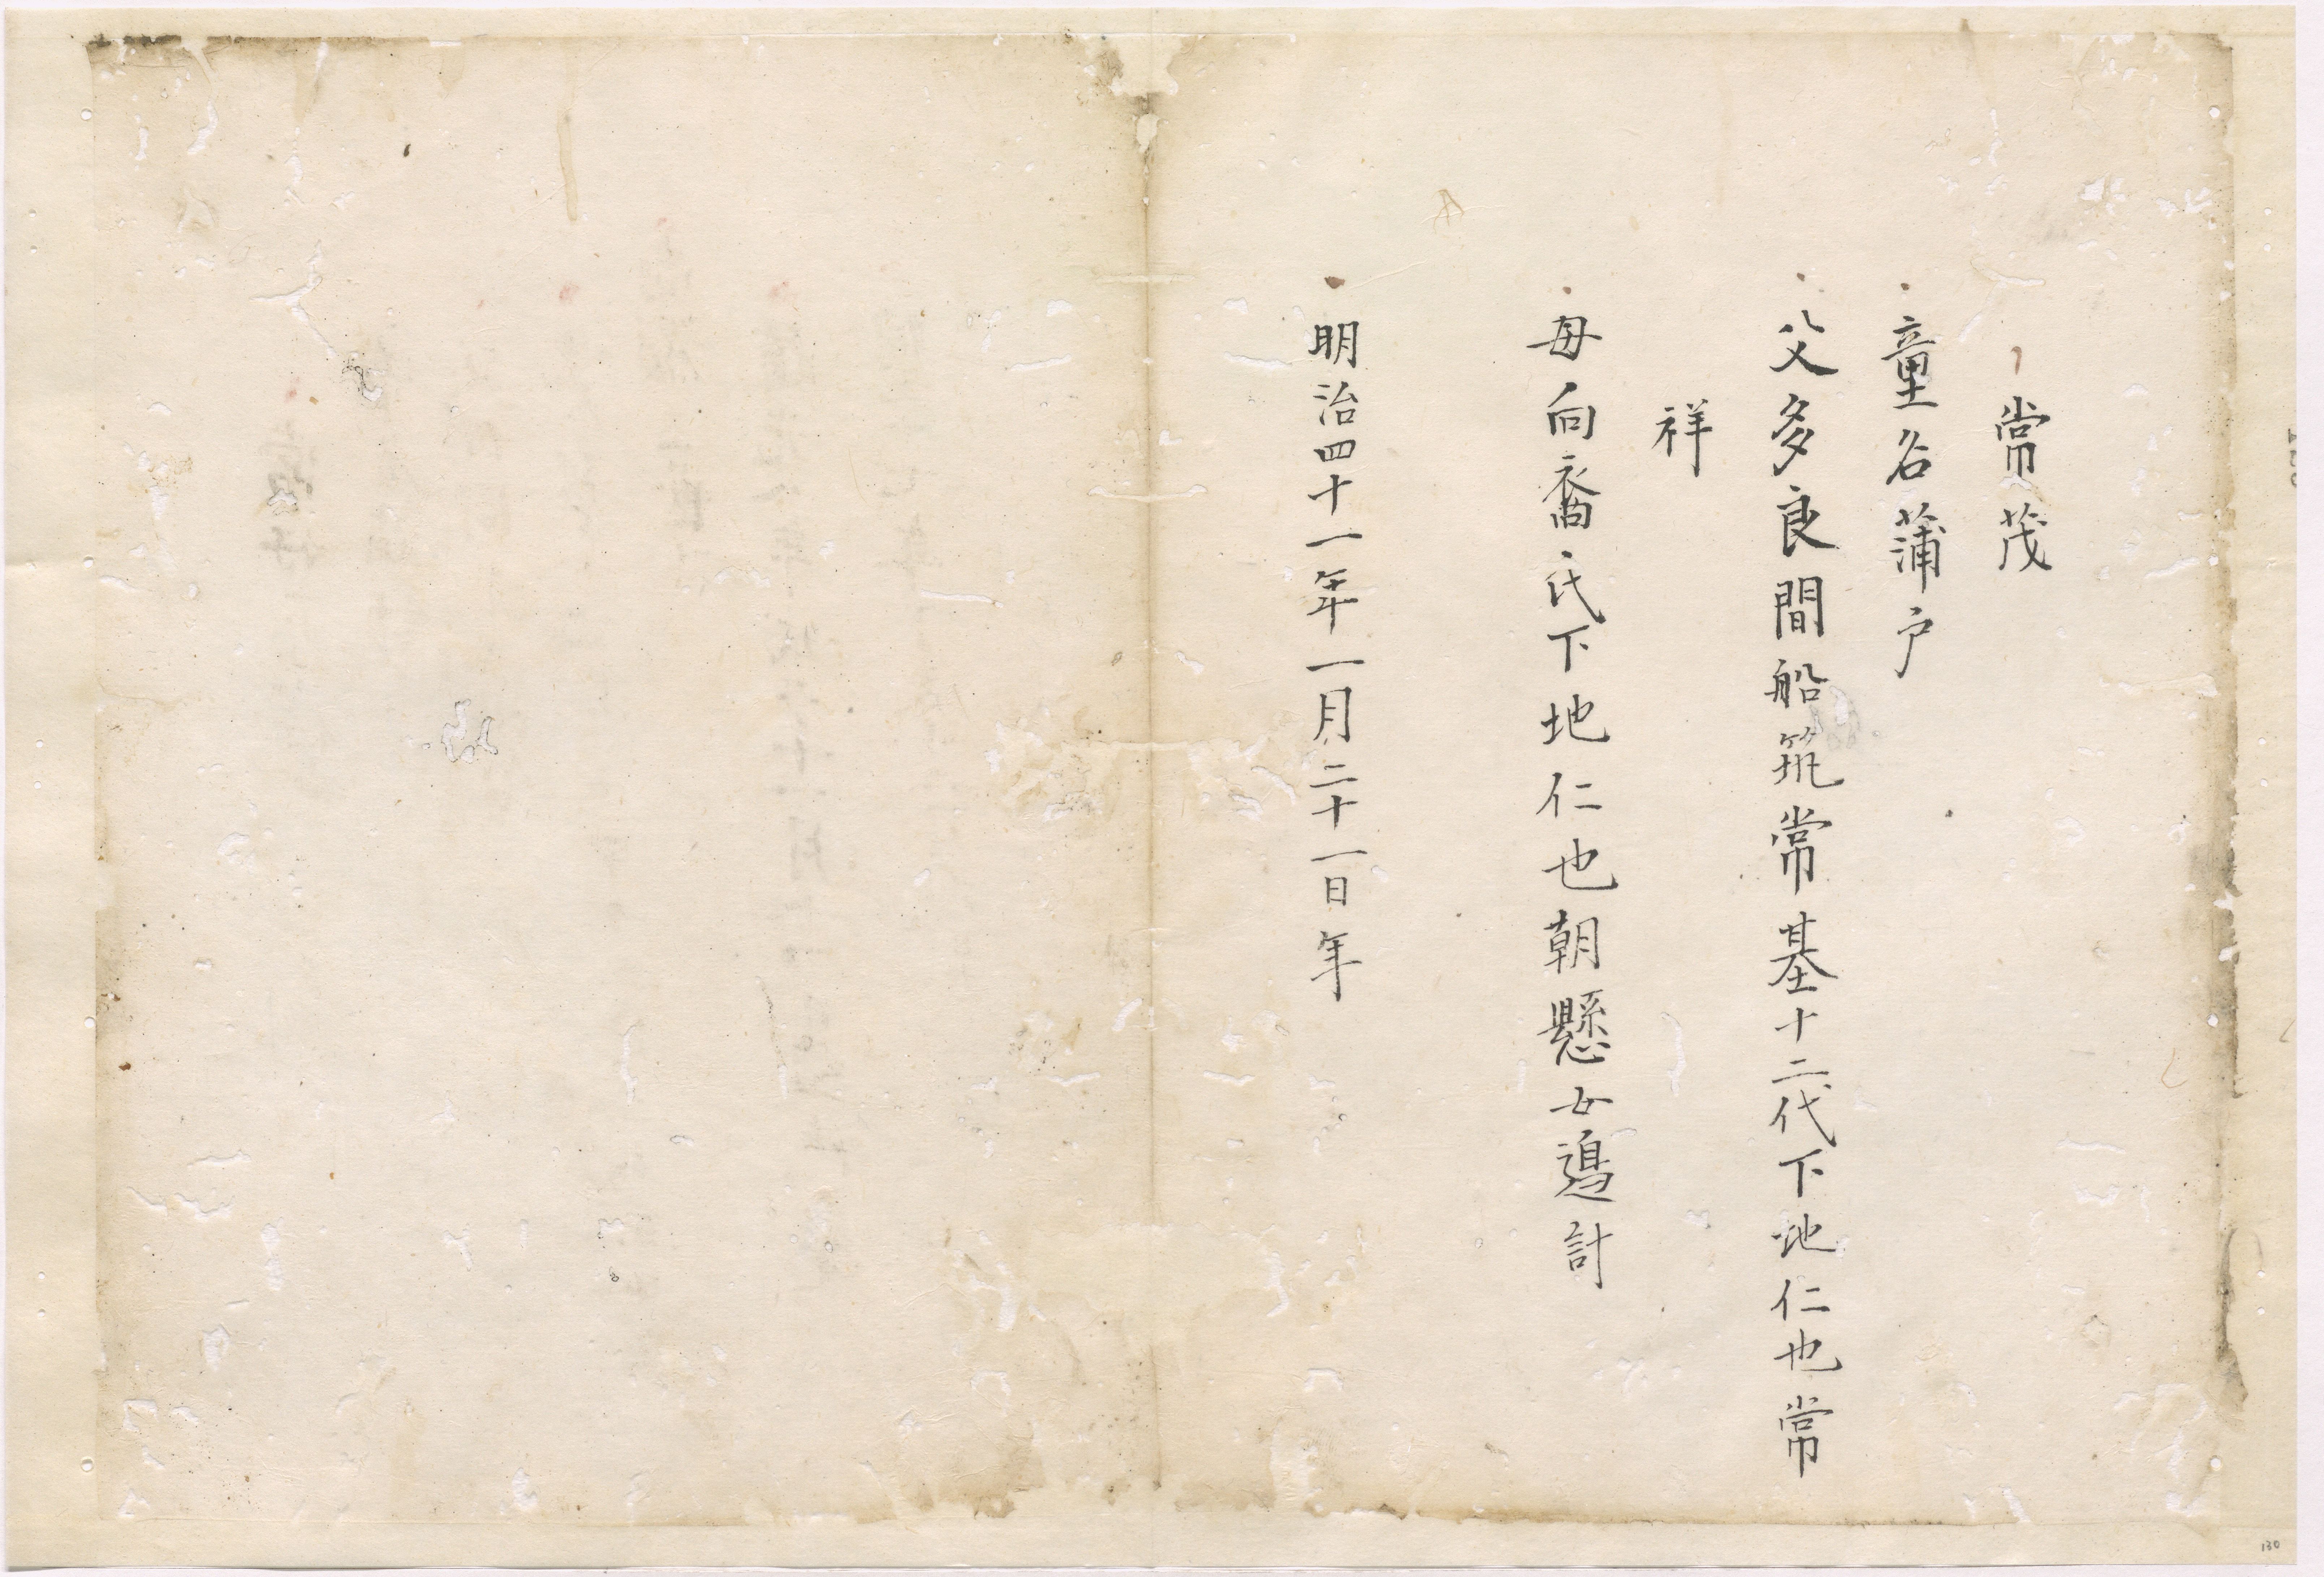 常茂
童名蒲戸
父多良間船筑常基十二代下地仁也常
祥
母向裔氏下地仁也朝懸女邉計
明治四十一年一月二十一日年
130